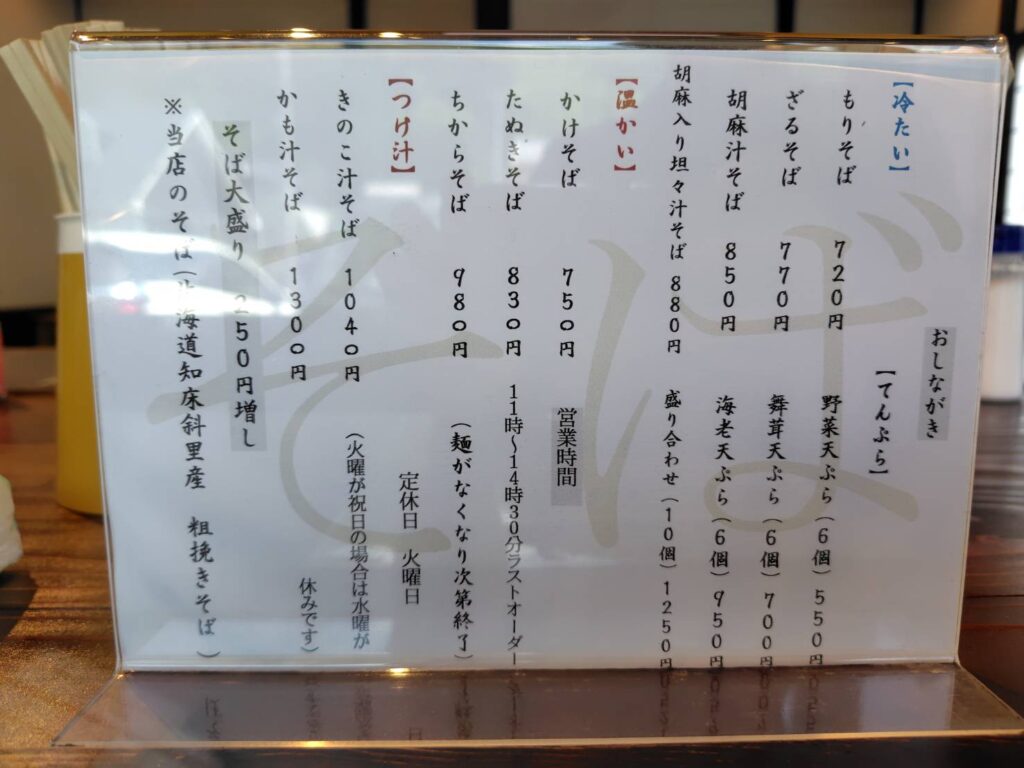 おしながき
【冷たい】
もりそば 720円
ざるそば 770円
胡麻汁そば 850円
胡麻入り坦々汁そば 880円
【温かい】
かけそば 750円
たぬきそば 830円
ちからそば 980円
【つけ汁】
きのこ汁そば 1040円
かも汁そば 1300円
そば大盛り 250円増し
※当店のそば(北海道知床斜里産 粗挽きそば)
【てんぷら】
野菜天ぷら(6個) 550円
舞茸天ぷら(6個) 700円
海老天ぷら(6個) 950円
盛り合わせ(10個) 1250円
営業時間
11時〜14時30分ラストオーダー
(麺がなくなり次第終了)
定休日 火曜日
(火曜が祝日の場合は水曜が
休みです)
そば